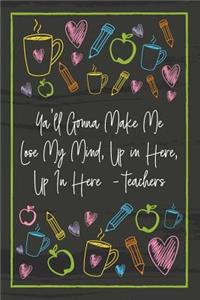 Ya'll Gonna Make Me
Lose My Mind, Up in Here,
Up In Here - Teachers